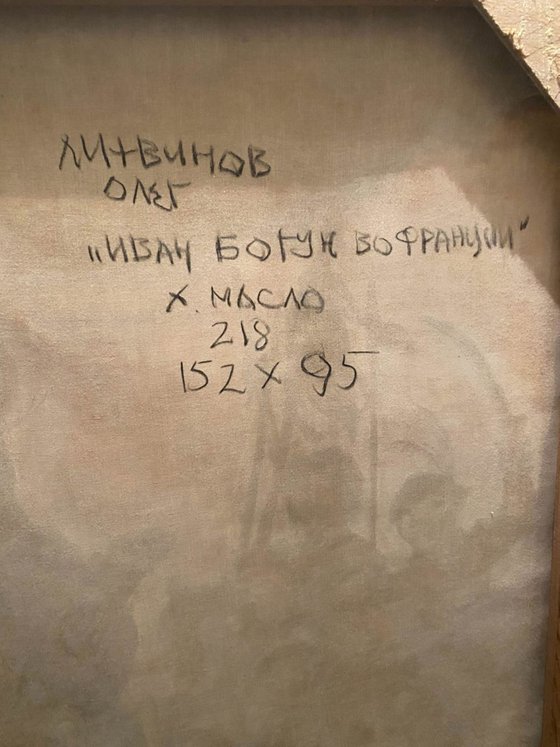 ЛИТВИНОВ
ОЛЕГ
„ИВАН БОГУН ВО ФРАНЦИИ"
Х. МАСЛО
218
152 х 95